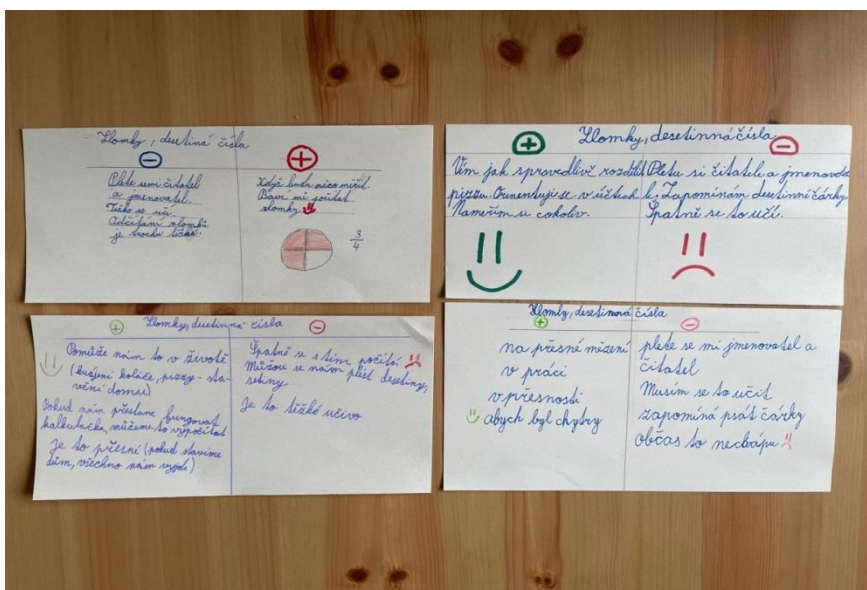 Zlomky, desetiná čísla
⊖
Plete semi čitatel
a jmenovatel.
Těžko se učí.
Odčítání zlomků
je trochu těžké.
⊕
Když budu něco měřit
Baví mi počítat
zlomky
3/4
Zlomky, desetinná čísla
⊕
Vím jak spravedlivě rozdělit
pizzu. Orientuji se v účtech
Naměřím si cokoliv.
⊖
Pletu si čitatele a jmenovate
le. Zapomínám desetinné čárky
Špatně se to učí.
Zlomky, desetinná čísla
⊕
Pomůže nám to v životě
(krájení koláče, pizzy - sta-
vění domu)
Pokud nám přestane fungovat
kalkulačka, můžeme to vypočítat
Je to přesní (pokud stavíme
dům, všechno nám vyjde)
⊖
Špatně se s tím počítá
Můžou se nám plést desetiny,
setiny
Je to těžké učivo
Zlomky, desetinová čísla
⊕
na přesné měření
v práci
v přesnosti
abych byl chytrý
⊖
plete se mi jmenovatel a
čitatel
Musím se to učit
zapomíná psát čárky
občas to nechápu